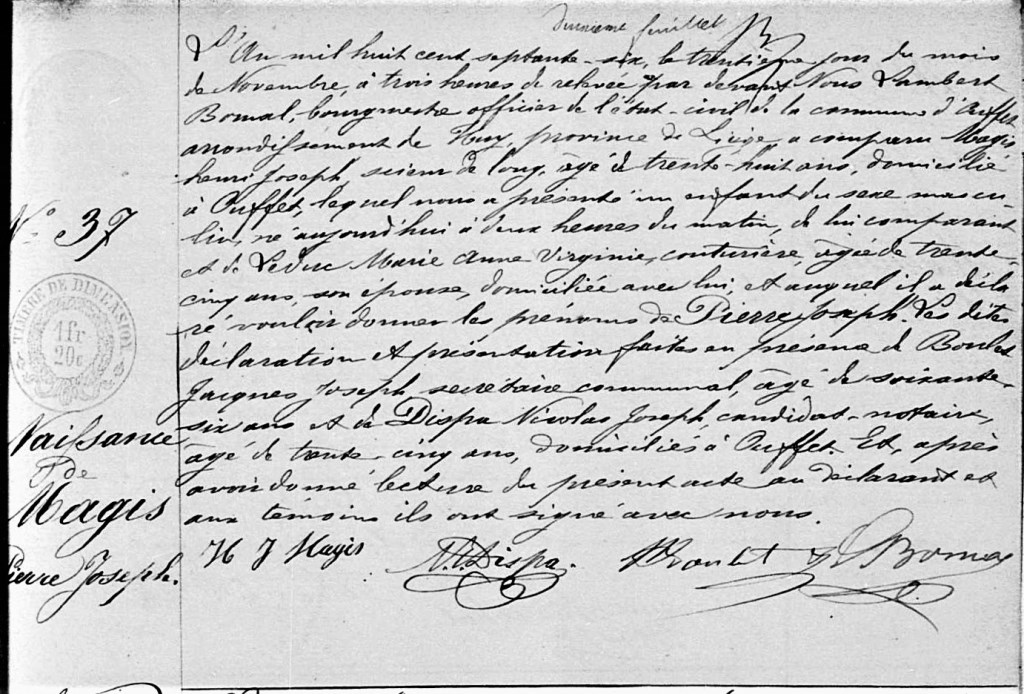 feuillet
L'An mil huit cent septante-six, le trentième jour du mois
de Novembre, à trois heures de relevée par devant Nous Lambert
Bomal, bourgmestre officier de l'état-civil de la commune d'Ouffet
arrondissement de Huy, province de Liège, a comparu Magis
henri Joseph, scieur de long, âgé de trente-huit ans, domicilié
à Ouffet, lequel nous a présenté un enfant du sexe mascu-
lin, né aujourd'hui à deux heures du matin, de lui comparant
et de Leduc Marie Anne Virginie, couturière, âgée de trente-
cinq ans, son épouse, domiciliée avec lui, et auquel il a décla
ré vouloir donner les prénoms de Pierre Joseph. Les dites
déclaration et présentation faites en présence de Boulet
Jacques Joseph, secrétaire communal, âgé de soixante-
six ans et de Dispa Nicolas Joseph, candidat-notaire,
âgé de trente-cinq ans, domiciliés à Ouffet. Et, après
avoir donné lecture du présent acte au déclarant et
aux témoins ils ont signé avec nous.
H J Magis
N. Dispa.
Boulet
Bomal
N° 37
TIMBRE DE DIMENSION
1fr
20c
Naissance
de
Magis
Pierre Joseph.